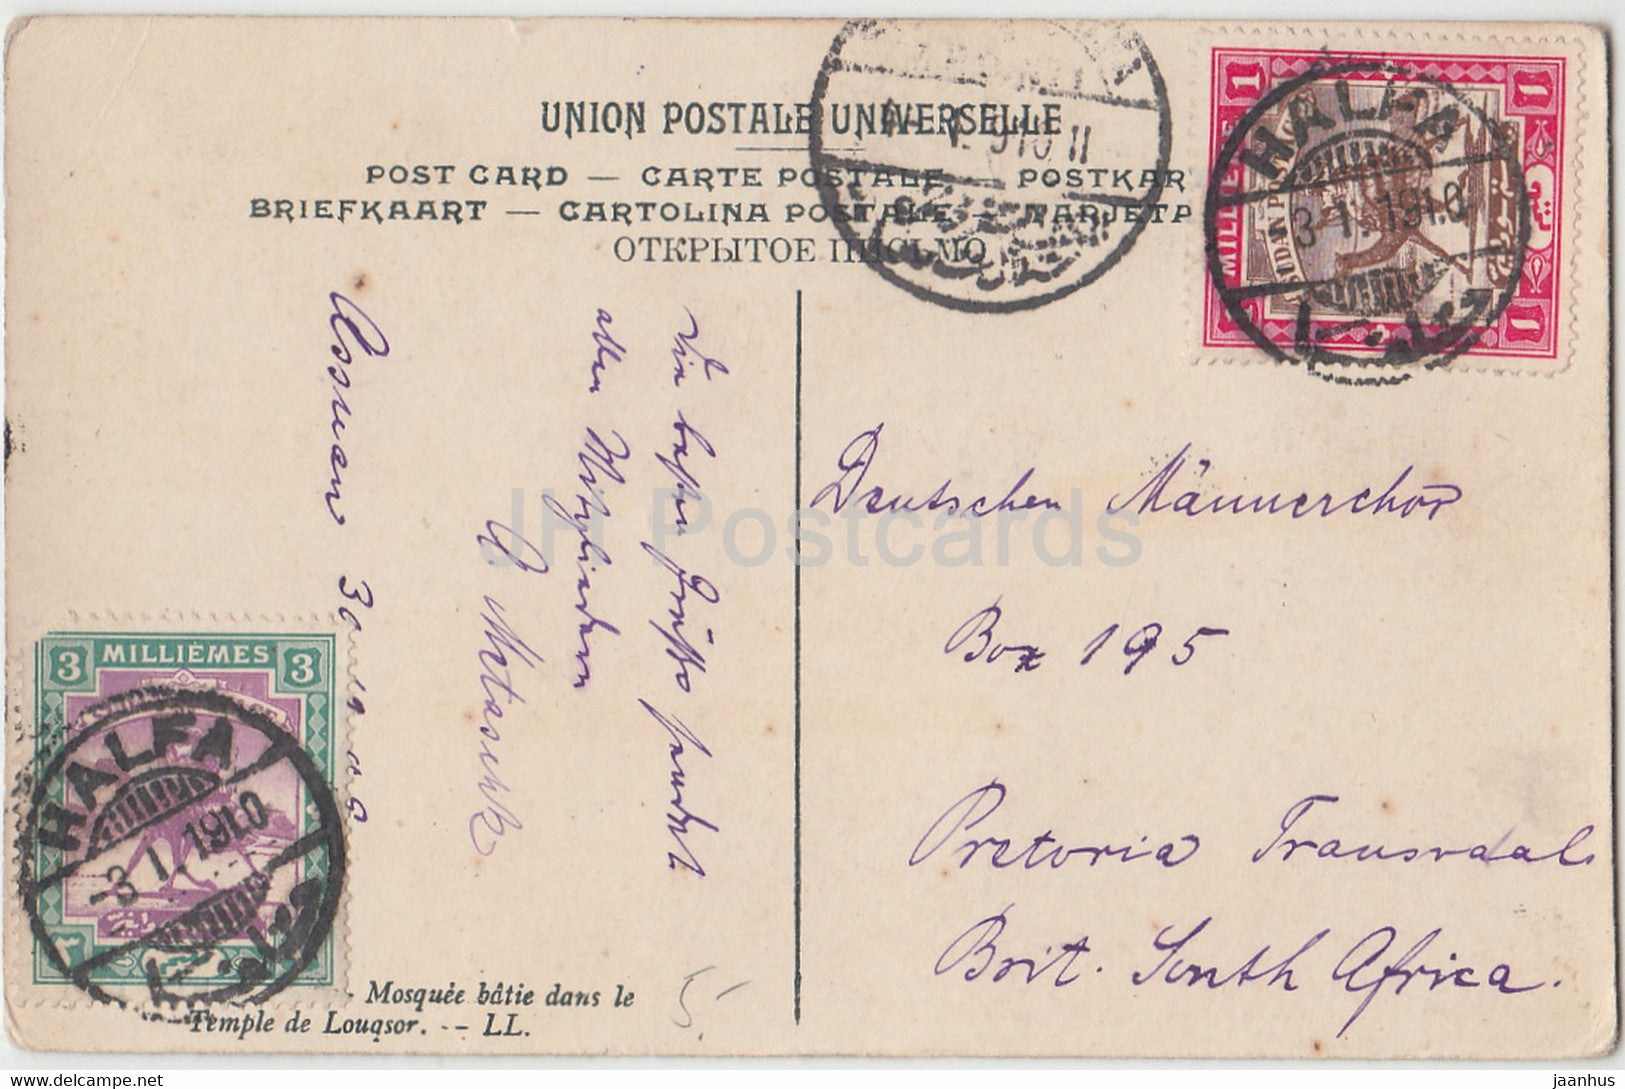 UNION POSTALE UNIVERSELLE
POST CARD — CARTE POSTALE — POSTKAR
BRIEFKAART — CARTOLINA POSTALE — TARJETP
ОТКРЫТОЕ ПИСЬМО
1 1
MILLIEME
SUDAN POSTAGE
1
HALFA
3 1. 1910
حلفا
V. 910 11
Assuan
Die besten Grüße sendet
allen Mitgliedern
Deutschen Männerchor
Box 195
Pretoria Transvaal.
Brit. South Africa.
3 MILLIÈMES 3
HALFA
-3 1. 1910
حلفا
٣
Mosquée bâtie dans le
Temple de Louqsor. -- LL.
JH Postcards
jaanhus @ delcampe.net